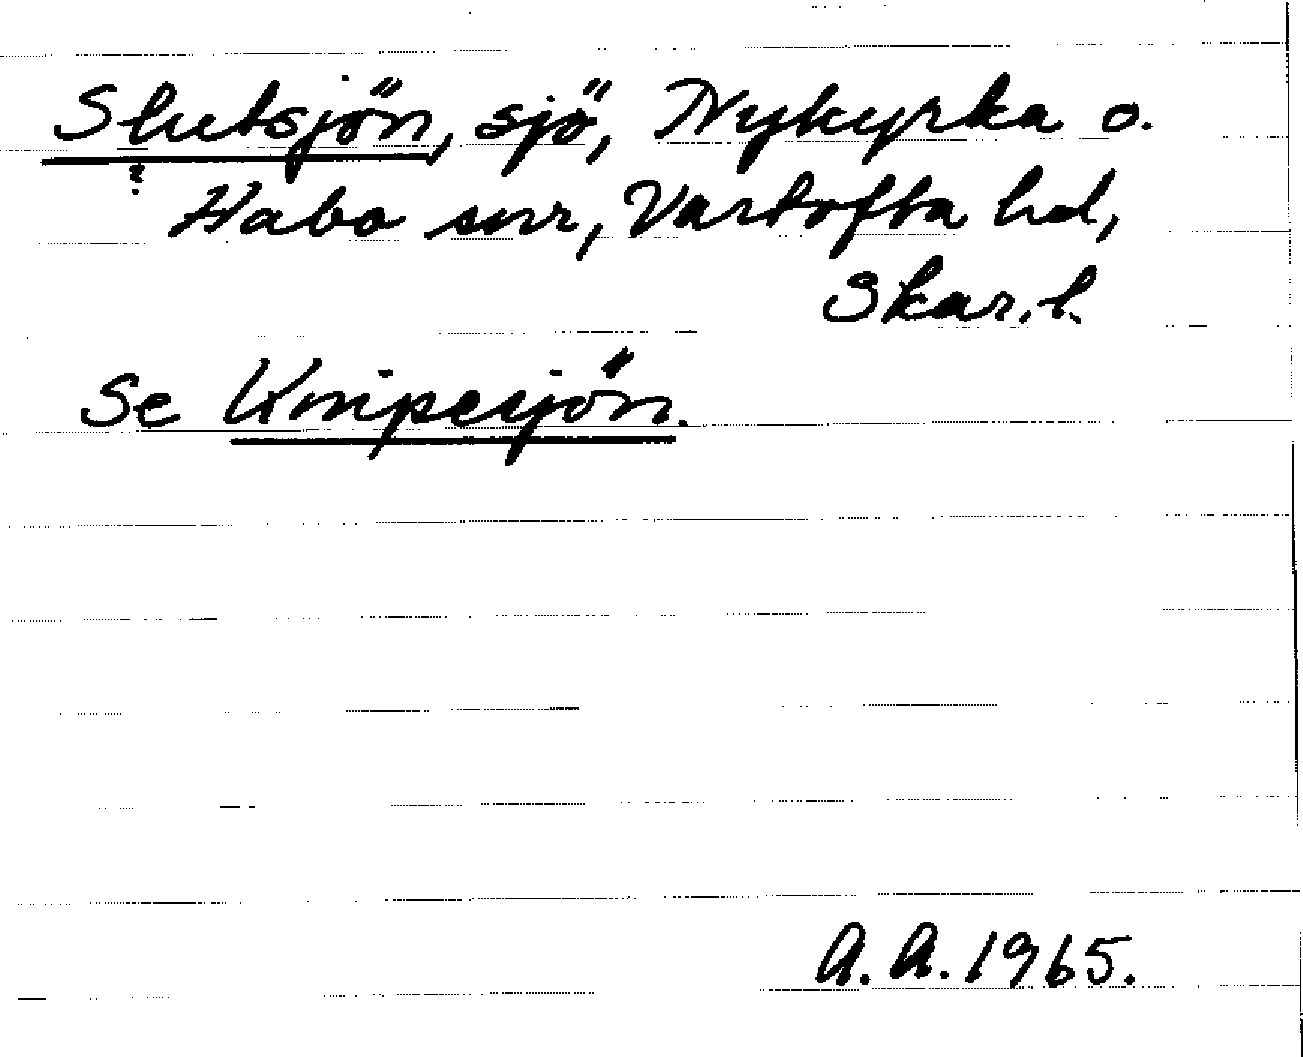 Slutsjön, sjö, Nykyrka o.
?
Habo snr, Vartofta hd,
Skar. l.
Se Knipesjön.
A. A. 1965.